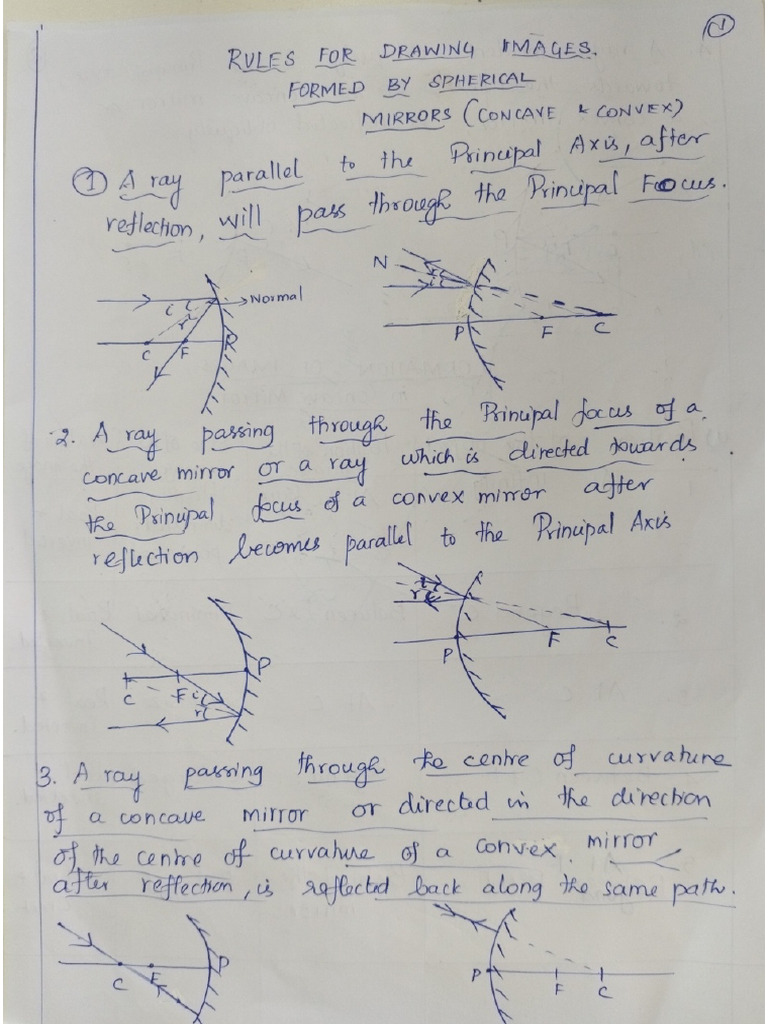 1
RULES FOR DRAWING IMAGES.
FORMED BY SPHERICAL
MIRRORS (CONCAVE & CONVEX)
① A ray parallel to the Principal Axis, after
reflection, will pass through the Principal Focus.
N
i
r
Normal
C F P
r
i
P F C
2. A ray passing through the Principal focus of a
concave mirror or a ray which is directed towards
the Principal focus of a convex mirror after
reflection becomes parallel to the Principal Axis
i
r
P F C
C F P
i
r
3. A ray passing through the centre of curvature
of a concave mirror or directed in the direction
of the centre of curvature of a convex. mirror
after reflection, is reflected back along the same path.
C F P
P F C